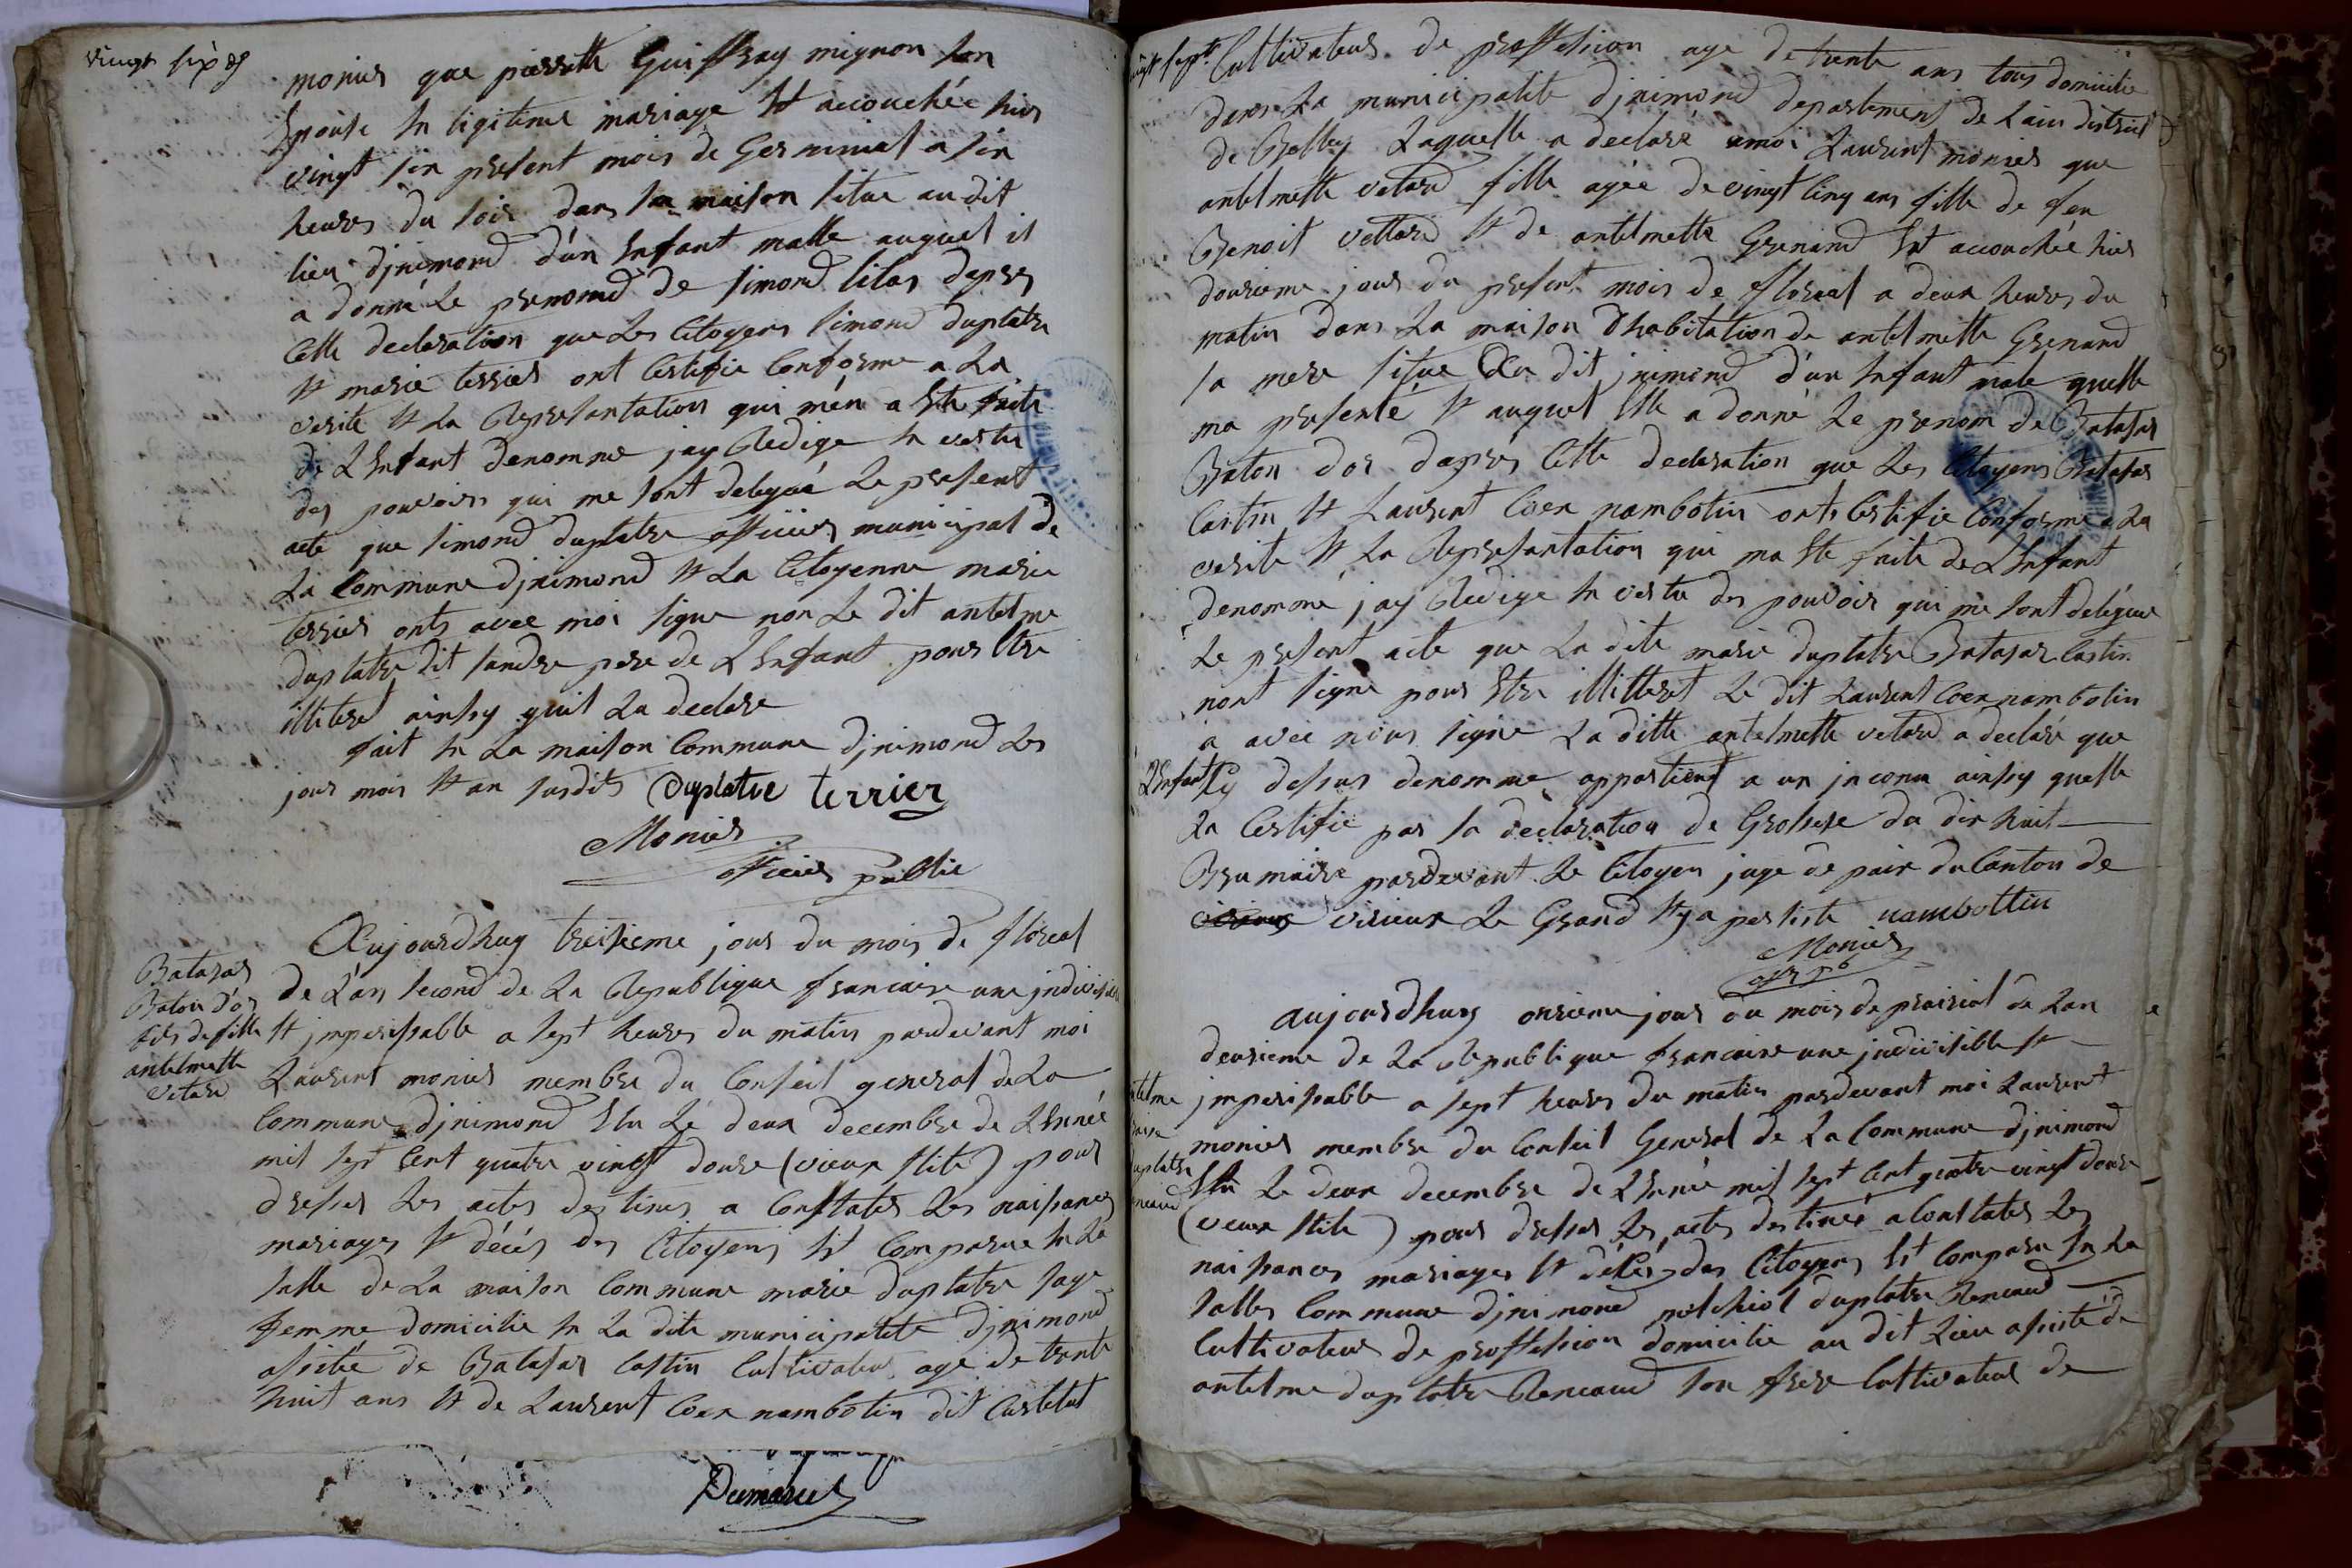 vingt six
monier que pierrette Guiffray mignon son
Epouse En legitime mariage Et accouchée hier
vingt six present mois de Germinal a six
heures du soir dans sa maison situe au dit
lieu djnimond d'un Enfant malle auquel il
a donné Le prenomd de simond lilas dapres
Cette declaration que Les Citoyens simond duplatre
Et marie terrier ont Certifie Conforme a La
verite Et La Representation qui m'en a Ete faite
de LEnfant denomme jay Redige En vertu
des pouvoirs qui me sont delegué Le present
acte que simond duplatre officier municipal de
La Commune djnimond Et La Citoyenne marie
terrier onts avec moi signe non Le dit antelme
duplatre dit sandre pere de LEnfant pour Etre
illiteret ainsy quil La declare
fait En La maison Commune djnimond Les
jour mois Et an susdits Duplatre terrier
Monier
officier public
Aujourdhuy treisieme jour du mois de floreal
de L'an second de La Republique francaise une jndivisible
Et jmperissable a sept heures du matin pardevant moi
Laurent monier membre du Conseil general de La
Commune djnimond Elu Le deux decembre de LEnnée
mil sept Cent quatre vingt douse (vieux stile) pour
dresser Les actes destines a Constater Les naissances
mariages Et décés des Citoyens Est Comparue En La
salle de La maison Commune marie duplatre sage
femme domicilie En La dite municipalite djnimond
assistée de Batasar Castin Cultivateur age de trente
huit ans Et de Laurent Coex nambotin dit Castelet
Batasar
Baton d'or
fils de fille
antelmette
vetard
Dumarest
vingt sept
Cultivateur de proffession age de trente ans tous domicilie
dans La municipalite djnimond departement de Lain district
de Belley Laquelle a declaré amoi Laurent monier que
antelmette vetard fille agée de vingt Cinq ans fille de feu
Benoit vettard Et de antelmette Grenand Est accouchée hier
dousieme jour du present mois de floreal a deux heures du
matin dans La maison d'habitation de antelmette Grenand
sa mere situe Au dit jnimond d'un Enfant male quelle
ma presenté Et auquel Elle a donné Le prenom de Batasar
Baton dor dapres Cette declaration que Les Citoyens Batasar
Castin Et Laurent Coex nambotin onts Certifie Conforme a La
verite Et La Representation qui ma Ete faite de LEnfant
denomme jay Redige En vertu des pouvoir qui me sont delégue
Le present acte que La dite marie duplatre Batasar Castin
nont signe pour Etre illitteret Le dit Laurent Coex nambotin
a avec nous signe La ditte antelmette vetard a declaré que
LEnfant Cy dessus denomme appartient a un jnconu ainsy quelle
La Certifie par sa declaration de Grossesse du dix huit
Brumaire pardevant Le Citoyen juge de paix du Canton de
virieux Le Grand Et y a persiste nambottin
Monier
off pb
aujourdhuy onsieme jour du mois de prairial de Lan
deuxieme de La Republique francaise une jndivisible Et
jmperissable a sept heures du matin pardevant moi Laurent
monier membre du Conseil General de La Commune djnimond
Elu Le deux decembre de LEnnée mil sept Cent quatre vingt douse
(vieux stile) pour dresser Les actes destinés a Constater Les
naissances mariages Et décés des Citoyens Est Comparu En La
salle Commune djnimond melchiol duplatre Renaud
Cultivateur de proffession domicilie au dit Lieu assisté de
antelme duplatre Renaud son frere Cultivateur de